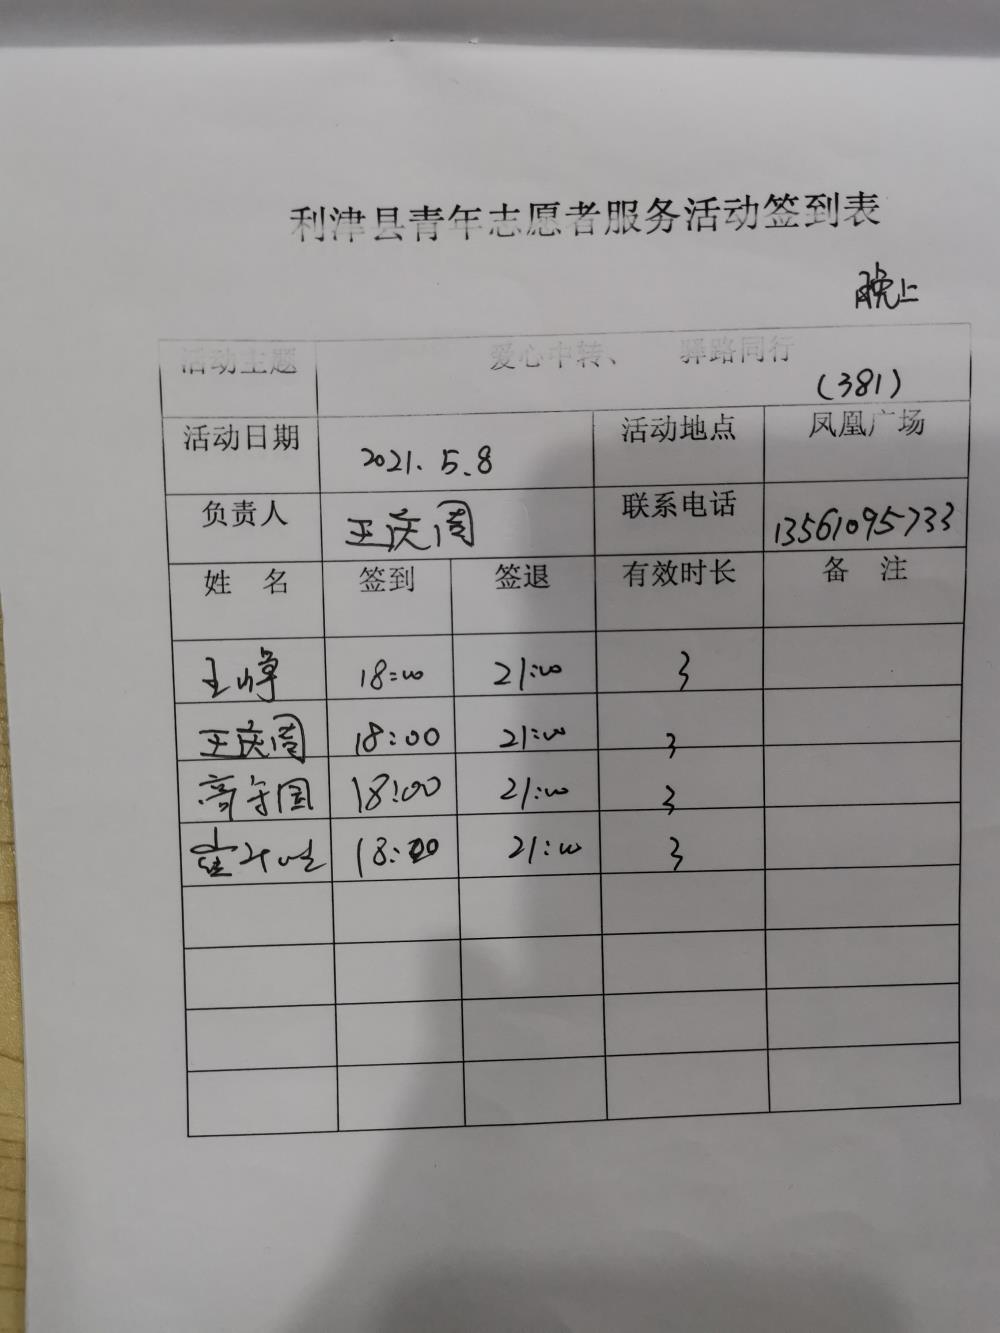 利津县青年志愿者服务活动签到表
晚上
活动主题 爱心中转、 驿路同行 (381)
活动日期 2021.5.8 活动地点 凤凰广场
负责人 王庆周 联系电话 13561095733
姓 名 签到 签退 有效时长 备 注
王峥 18:00 21:00 3
王庆周 18:00 21:00 3
高守国 18:00 21:00 3
18:00 21:00 3